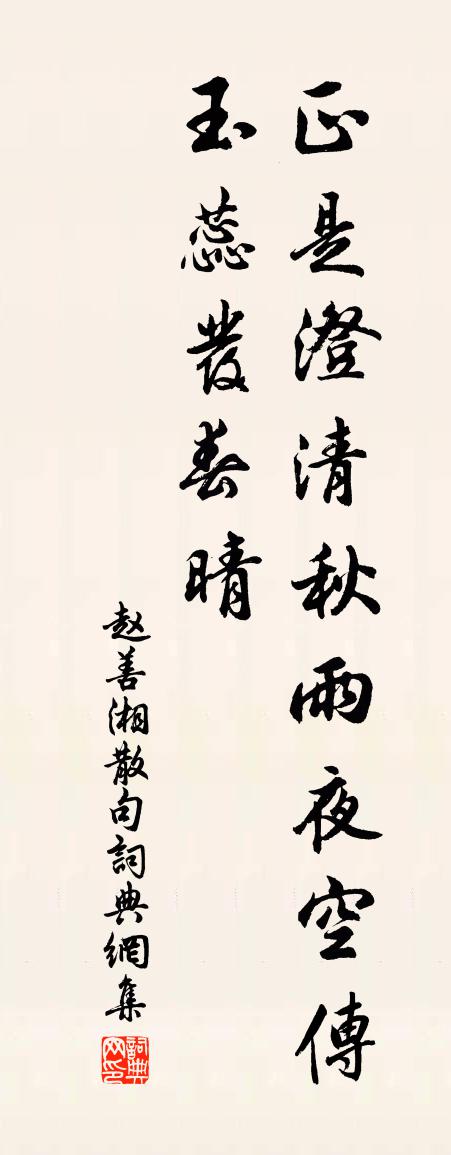 正是澄清秋雨夜空傳
玉蕊發春晴
赵善湘散句詞典網集
詞典网印